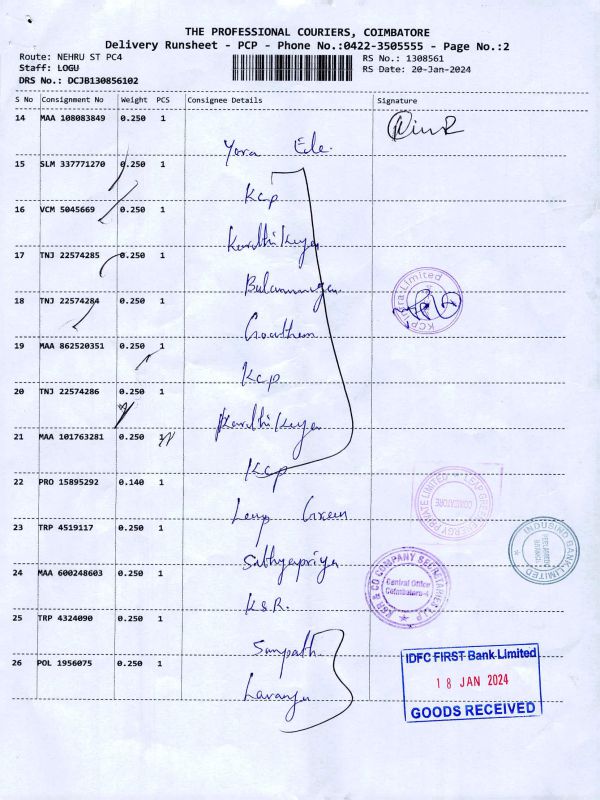 THE PROFESSIONAL COURIERS, COIMBATORE
Delivery Runsheet - PCP - Phone No.:0422-3505555 - Page No.:2
Route: NEHRU ST PC4
RS No.: 1308561
Staff: LOGU
RS Date: 20-Jan-2024
DRS No.: DCJB130856102
S No Consignment No Weight PCS Consignee Details Signature
14 MAA 108083849 0.250 1
Yora Ede.
15 SLM 337771270 0.250 1
Kcp
16 VCM 5045669 0.250 1
Karthikeya
17 TNJ 22574285 0.250 1
Balamurugan
18 TNJ 22574284 0.250 1
Goutham
KCP Infra Limited
19 MAA 862520351 0.250 1
Kcp
20 TNJ 22574286 0.250 1
Karthikeya
21 MAA 101763281 0.250
Kcp
22 PRO 15895292 0.140 1
Leap Green
LEAP GREEN ENERGY PRIVATE LIMITED
COIMBATORE
23 TRP 4519117 0.250 1
Sathyapriya
INDUSIND BANK LIMITED
24 MAA 600248603 0.250 1
K.S.R.
KSR & CO COMPANY SECRETARIES LLP
Central Office
Coimbatore-4
25 TRP 4324090 0.250 1
Sampath
26 POL 1956075 0.250 1
Lavanya
IDFC FIRST Bank Limited
18 JAN 2024
GOODS RECEIVED